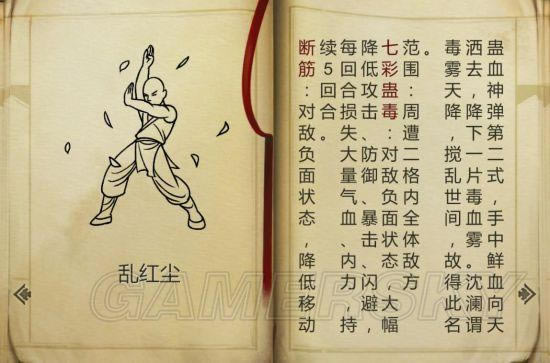 乱红尘
蛊血神弹第二式,手中鲜血向天
洒去,降下一片毒血雾。沈澜谓
毒雾天降,搅乱世间,故得此名
。
范围:周遭二格内全体敌方
七彩蛊毒:对敌负面状态,大幅
降低攻击、防御、暴击、闪避,
每回合损失大量气血、内力,持
续5回合。
断筋:对敌负面状态,降低移动
GAMERSKY